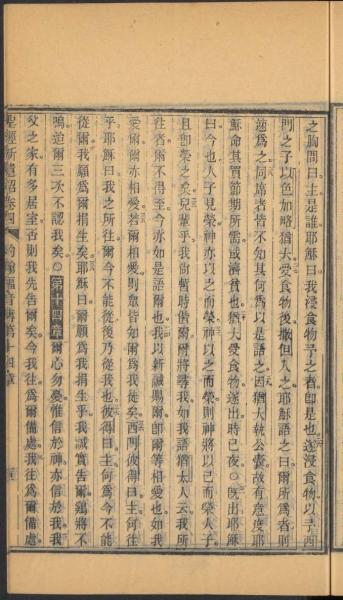 之胸間曰主是誰耶穌曰我浸食物予之者即是也遂浸食物以予西
門之子以色加略猶大受食物後撒但入之耶穌語之曰爾所爲者則
速爲之同席者皆不知其何爲以是語之因猶大執公囊故有意度耶
穌命其買節期所需或濟貧也猶大受食物遂出時已夜○旣出耶穌
曰今也人子見榮神亦以之而榮神以之而榮則神將以己而榮人子
且卽榮之矣兒輩乎我尙暫時偕爾爾將尋我如我語猶太人云我所
往者爾不得至今亦如是語爾也我以新誡賜爾卽爾等相愛也如我
愛爾爾亦相愛若爾相愛則衆皆知爾爲我徒矣西門彼得曰主何往
乎耶穌曰我之所往爾今不能從後乃從我也彼得曰主何爲今不能
從爾我願爲爾捐生矣耶穌曰爾願爲我捐生乎我誠實告爾鷄將不
鳴迨爾三次不認我矣○第十四章爾心勿憂惟信於神亦信於我我
父之家有多居室否則我先告爾矣今我往爲爾備處我往爲爾備處
聖經新遺詔卷四 約翰福音傳第十四章